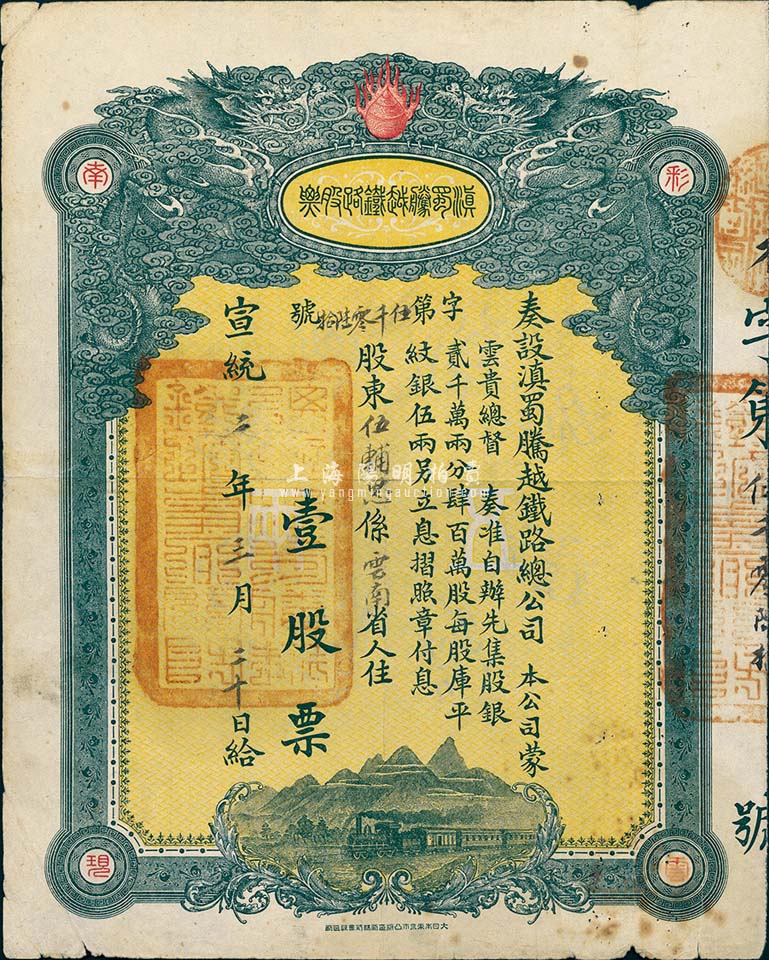 滇蜀騰越鐵路股票
彩
南
奏設滇蜀騰越鐵路總公司 本公司蒙
雲貴總督 奏准自辦先集股銀
貳千萬兩分肆百萬股每股庫平
紋銀伍兩另立息摺照章付息
字第伍千零陸拾號
股東伍輔 係雲南省人住
壹股票
宣統 年三月三十日給
字第伍千零陸拾
號
現
上海陽明拍賣
www.yangmingauction.com